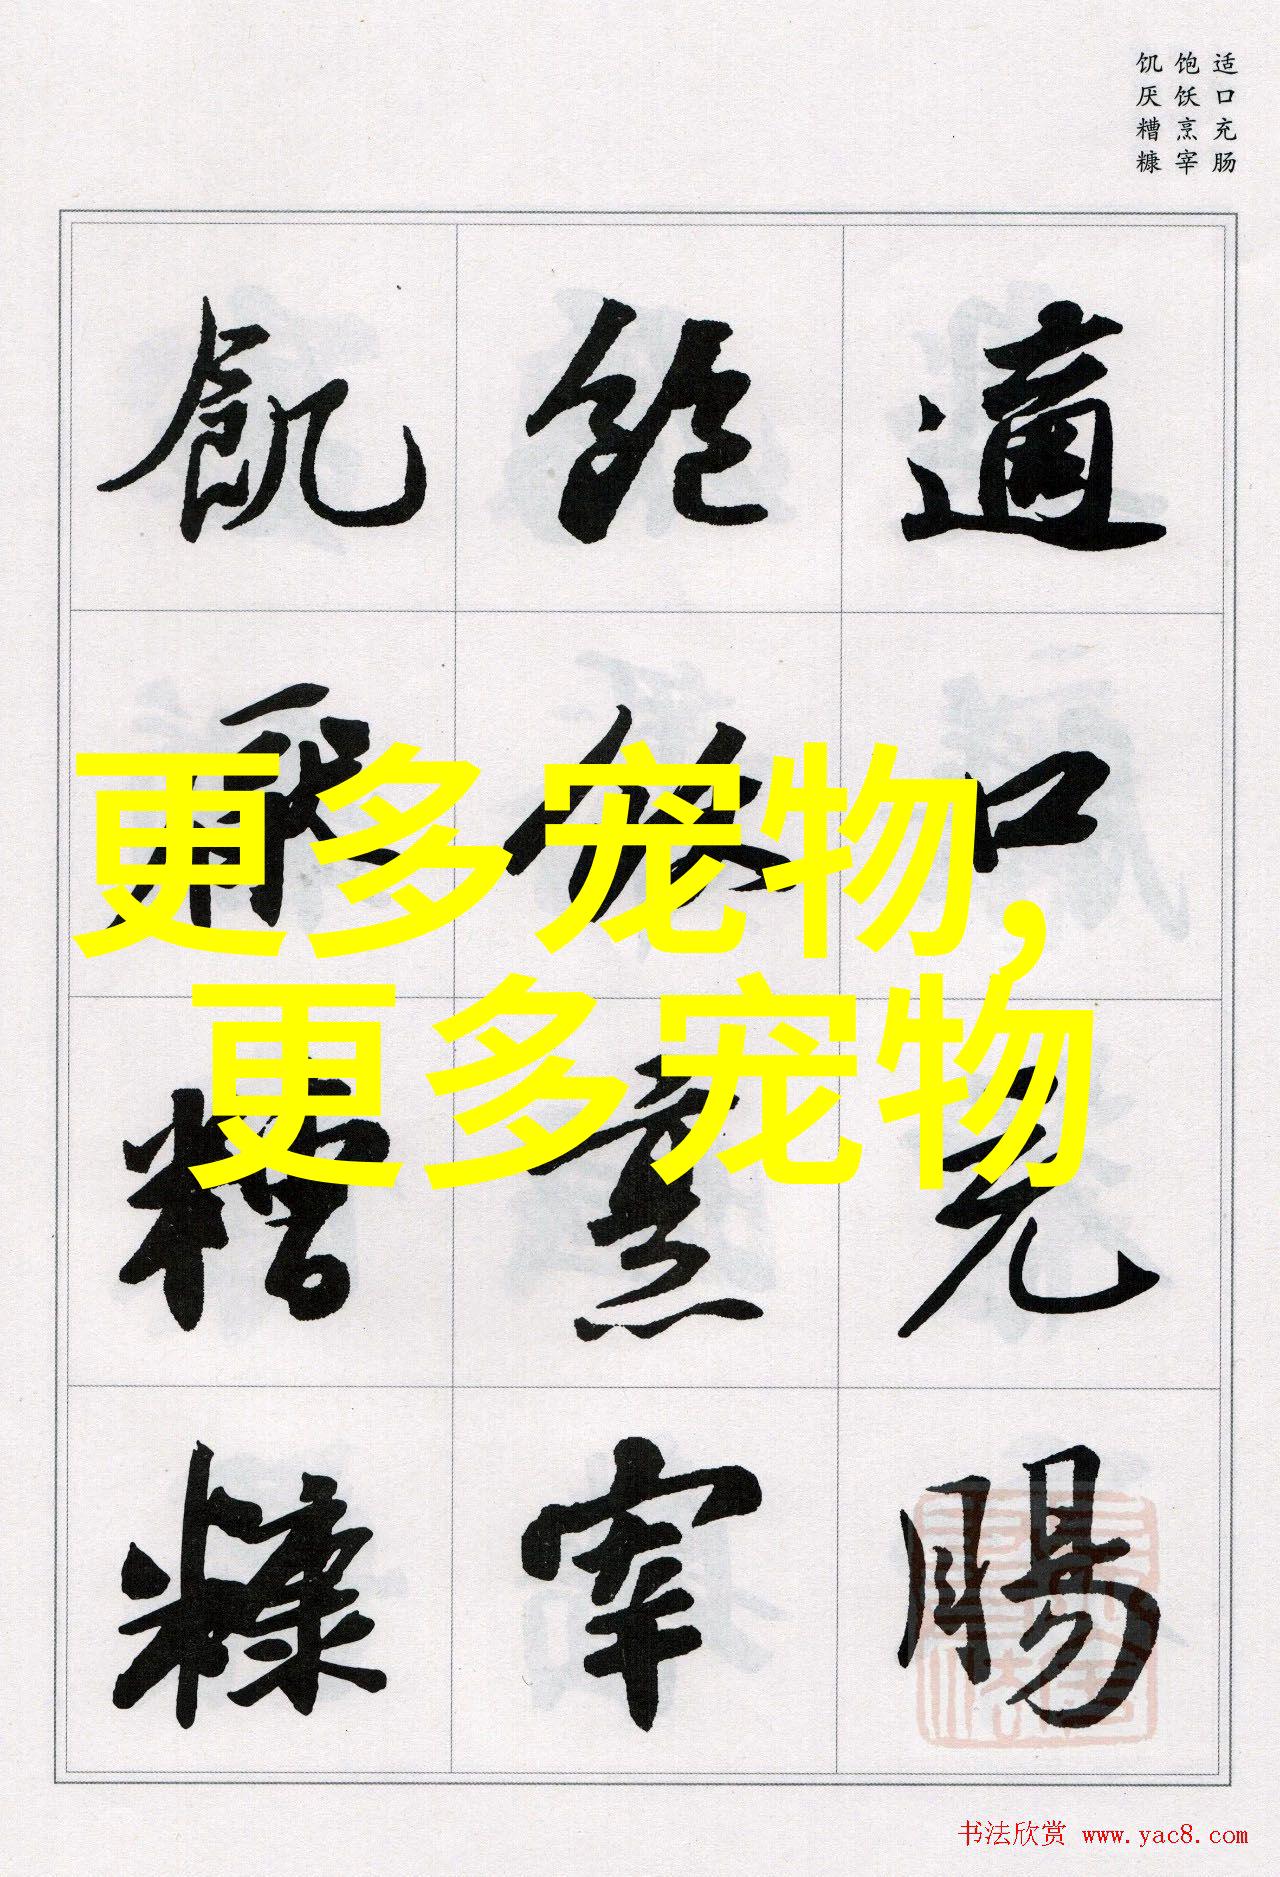 适口充肠
饱饫烹宰
饥厌糟糠
適口充腸
飽飫烹宰
飢厭糟糠
更多宠物,
更多宠物
书法欣赏 www.yac8.com